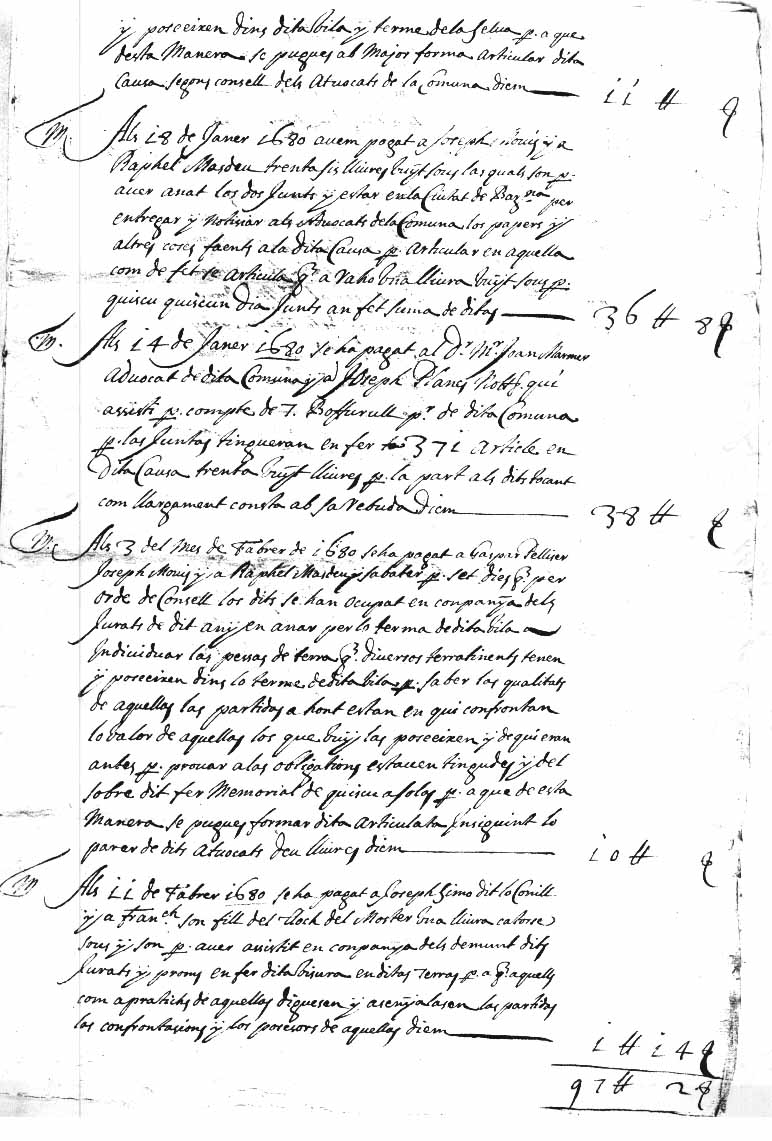 y poseeixen dins dita vila y terme de la Selva p. a que
desta Manera se pugues ab Major forma Articular dita
Causa segons consell dels Atvocats de la Comuna diem 11 ℔ ß
M. Als 18 de Janer 1680 avem pagat a Joseph y a
Raphel Masdeu trenta sis lliures vuyt sous las quals son p.
aver anat los dos Junts y estar en la Ciutat de Bar.na per
entregar y Notisiar als Advocats de la Comuna los papers y
altres coses faents a la dita Causa p. Articular en aquella
com de fet se articula q.e a raho una lliura vuyt sous p.
quiscu quiscun dia Junts an fet suma de ditas 36 ℔ 8 ß
M. Als 14 de Janer 1680 se ha pagat al D.r M.r Joan Marmer
Advocat de dita Comuna y a Joseph Planes Nott. qui
assisti p. compte de J. Boffurull p.r de dita Comuna
p. las Juntas tingueran en fer lo 371 Article en
dita Causa trenta vuyt lliures p. la part als dits tocant
com llargament consta ab sa rebuda diem 38 ℔ ß
M. Als 3 del Mes de Fabrer de 1680 se ha pagat a Gaspar Pelliser
Joseph y a Raphel Masdeu y Sabater p. set dies q.e per
orde de Consell los dits se han ocupat en conpanya dels
Jurats de dit any en anar per lo terma de dita vila a
Individuar las pessas de terra q.e diversos terratinents tenen
y poseeixen dins lo terme de dita vila p. saber las qualitats
de aquellas las partidas a hont estan en qui confrontan
lo valor de aquellas los que vuy las poseeixen y de qui eran
antes p. provar a las obligations estaven tingudes y del
sobre dit fer Memorial de quiscu a solas p. a que de esta
Manera se pugues formar dita Articulata Insiguint lo
parer de dits Atvocats deu lliures diem 10 ℔ ß
M. Als 11 de Fabrer 1680 se ha pagat a Joseph Simo dit lo Conill
y a Fran.ch son fill del Lloch del Morster una lliura catorse
sous y son p. aver assistit en conpanya dels demunt dits
Jurats y proms en fer dita visura en ditas terras p. a q.e aquells
com a pratichs de aquellas diguesen y asenyalasen las partidas
las confrontasions y los posesors de aquellas diem
1 ℔ 14 ß
97 ℔ 2 ß